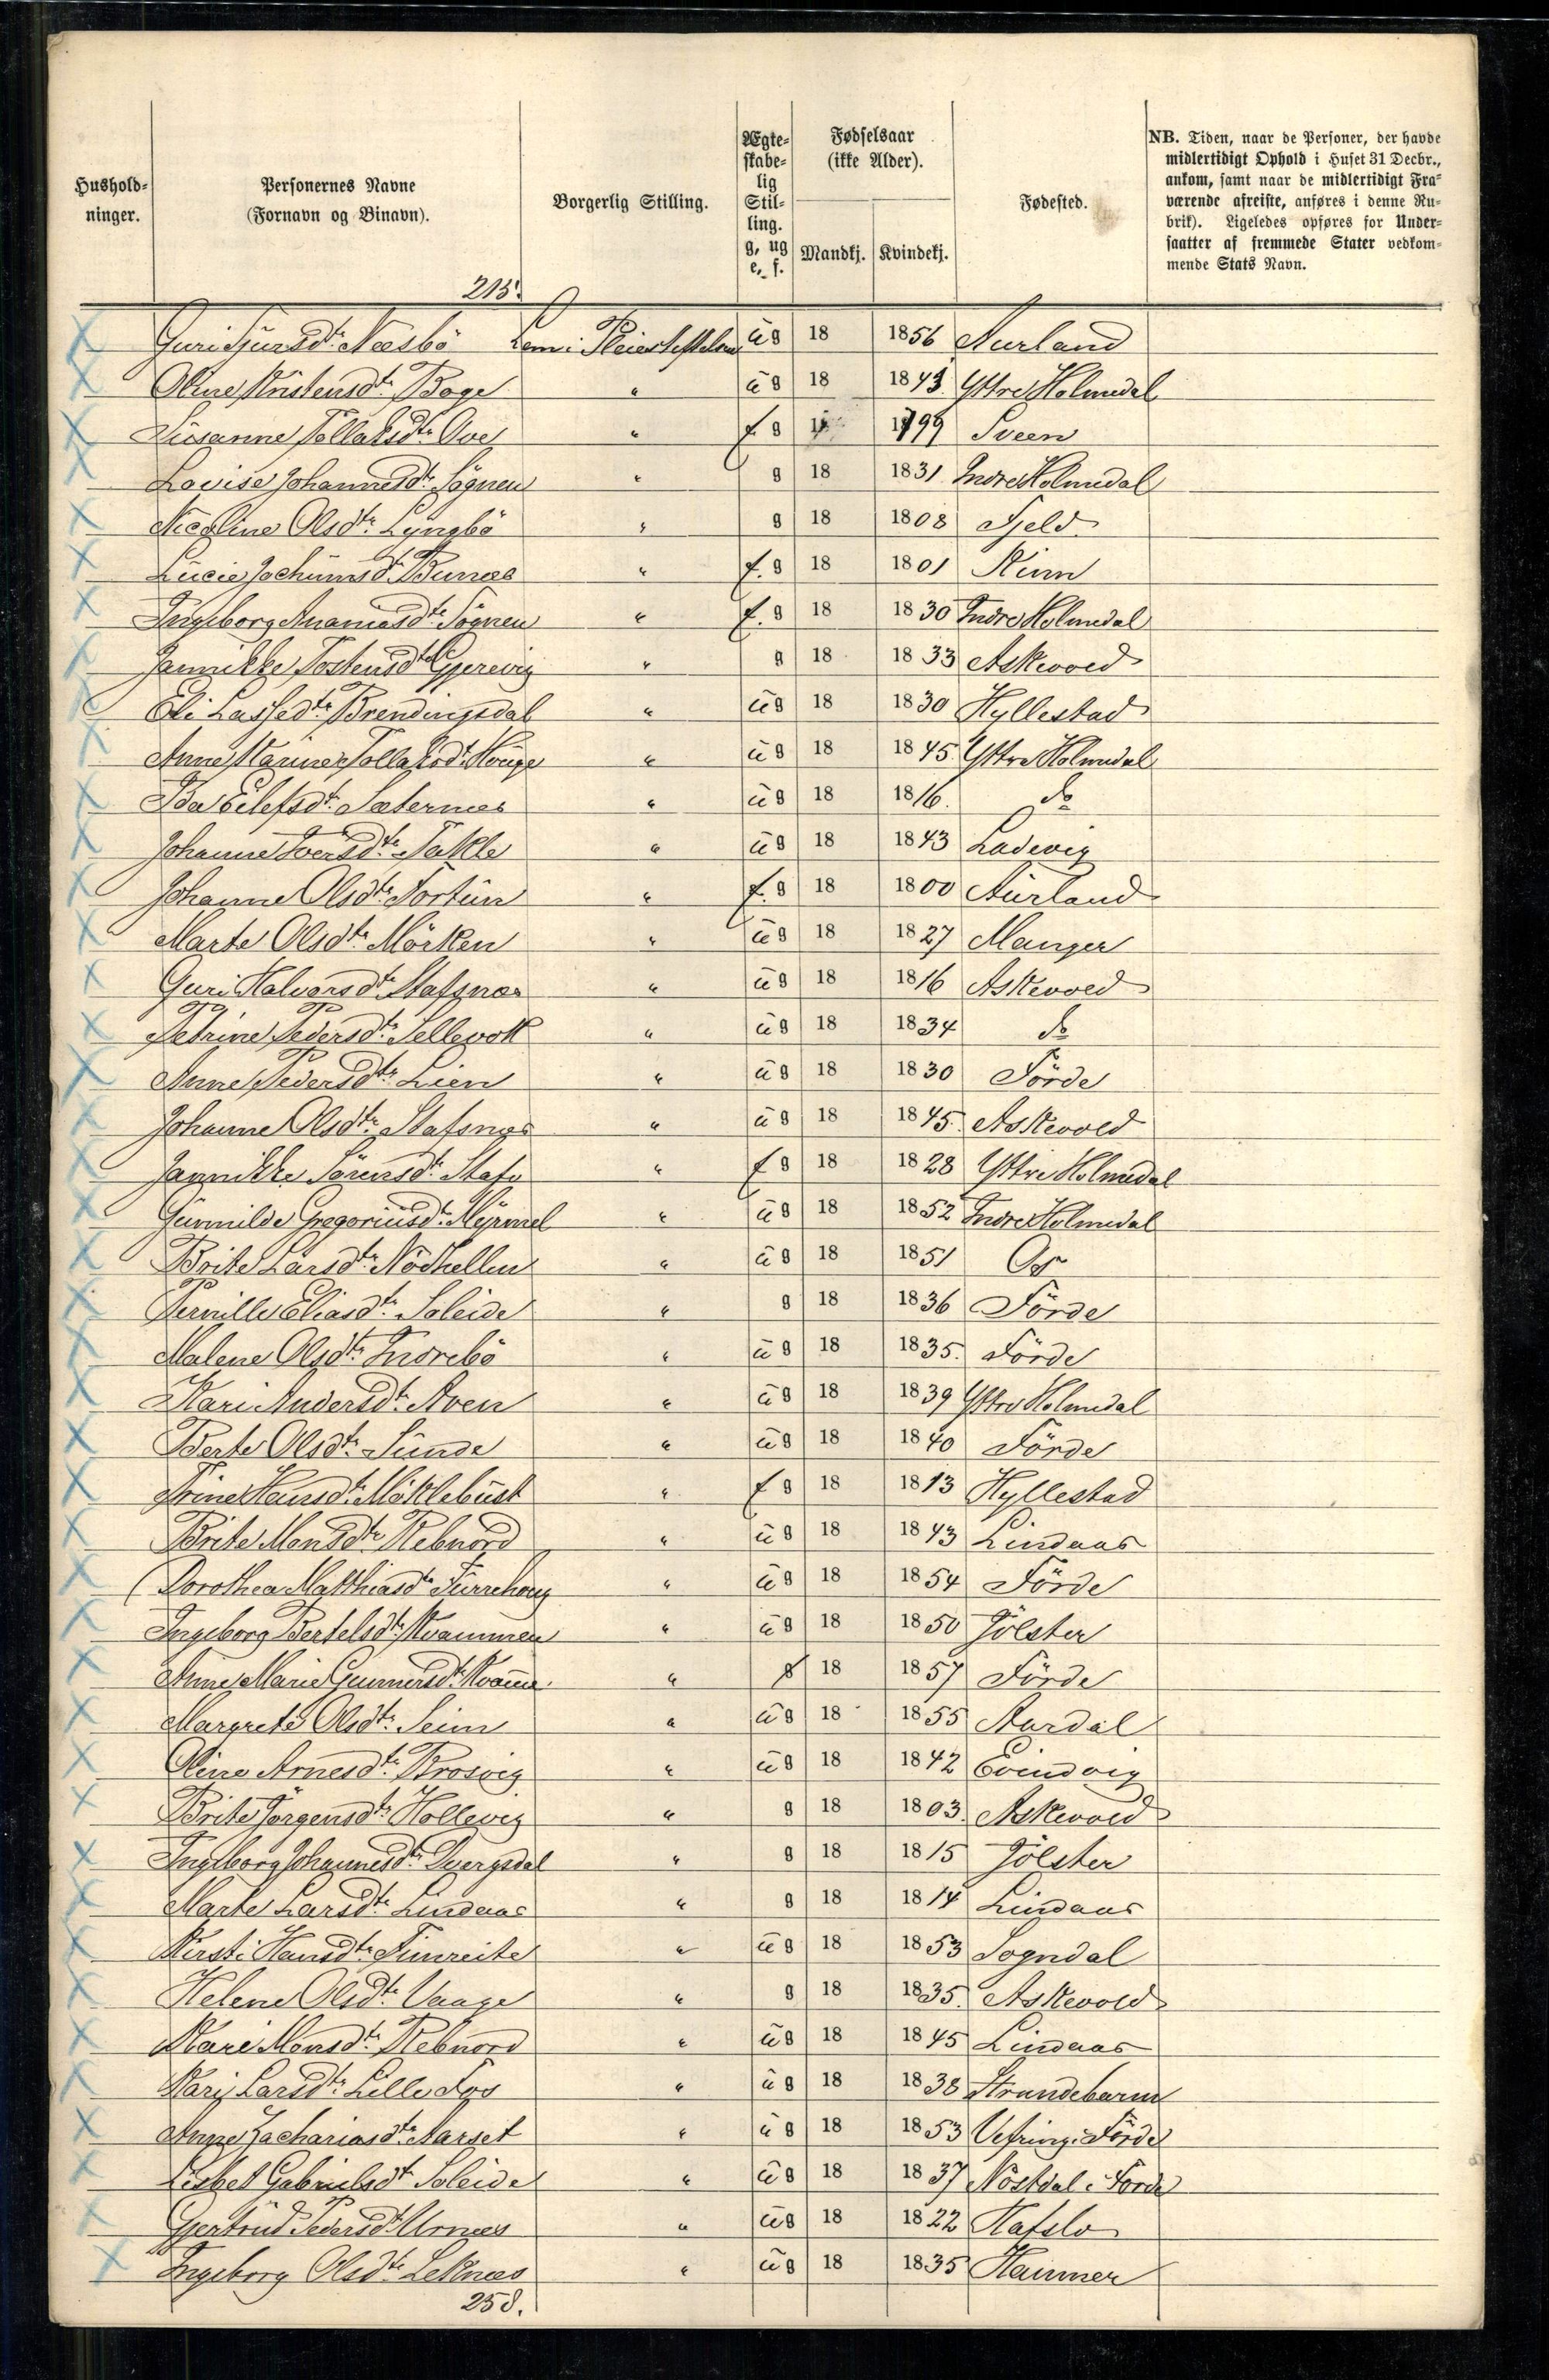 Hushold-
ninger.
Personernes Navne
(Fornavn og Binavn).
Borgerlig Stilling.
Ægte-
skabe-
lig
Stil-
ling.
g, ug
e, f.
Fødselsaar
(ikke Alder).
Mandkj. Kvindekj.
Fødested.
NB. Tiden, naar de Personer, der havde
midlertidigt Ophold i Huset 31 Decbr.,
ankom, samt naar de midlertidigt Fra-
værende afreiste, anføres i denne Ru-
brik). Ligeledes opføres for Under-
saatter af fremmede Stater vedkom-
mende Stats Navn.
215.
Guri Sjursdtr Næsbö Lem i Pleiestiftelsen ug 18 1856 Aurland
Oline Kristensdtr Boge " ug 18 1843 Yttre Holmedal
Susanne Tollaksdtr Ove " f g 1799 Sveen
Lovise Johannesdtr Sögnen " g 18 1831 Indre Holmedal
Nicoline Olsdtr Lyngbö " g 18 1808 Fjeld
Lucie Jochumsdtr Barnæs " f. g 18 1801 Kinn
Ingeborg Ananiasdtr Sögnen " f. g 18 1830 Indre Holmedal
Jannikke Tostensdtr Gjerevig " g 18 1833 Askevold
Eli Lassedtr Brendingsdal " ug 18 1830 Hyllestad
Anne Marine Tollaksdtr Houge " ug 18 1845 Yttre Holmedal
Ida Eilefsdtr Sæternes " ug 18 1816. do
Johanne Iversdtr Takle " ug 18 1843 Ladevig
Johanne Olsdtr Fortun " f. g 18 1800 Aurland
Marte Olsdtr Mörken " ug 18 1827 Manger
Guri Halvorsdtr Stafsnæs " ug 18 1816 Askevold
Petrine Pedersdtr Sellevold " ug 18 1834 do
Anne Pedersdtr Lien " ug 18 1830 Förde
Johanne Olsdtr Stafsnæs " ug 18 1845. Askevold
Jannikke Sörensdtr Stafs " f g 18 1828 Yttre Holmedal
Gunnilde Gregoriusdtr Myrmel " ug 18 1852 Indre Holmedal
Brite Larsdtr Nödhellen " ug 18 1851 Os
Pernille Eliasdtr Soleide " g 18 1836 Förde
Malene Olsdtr Indrebö " ug 18 1835. Förde
Kari Andersdtr Aven " ug 18 1839 Yttre Holmedal
Berte Olsdtr Sunde " ug 18 1840 Förde
Trine Hansdtr Möklebust " f g 18 1813 Hyllestad
Brite Monsdtr Rebnord " ug 18 1843 Lindaas
Dorothea Matthiasdtr Furrehoug " ug 18 1854 Förde
Ingeborg Bertelsdtr Kvammen " ug 18 1850 Jölster
Anne Marie Gunnersdtr Kvamme " g 18 1857 Förde
Margrete Olsdtr Seim " ug 18 1855 Aardal
Oline Arnesdtr Brosvig " ug 18 1842 Evindvig
Brite Jörgensdtr Hollevig " g 18 1803. Askevold
Ingeborg Johannesdtr Dvergsdal " g 18 1815 Jölster
Marte Larsdtr Lindaas " g 18 1814 Lindaas
Kirsti Hansdtr Fimreite " ug 18 1853 Sogndal
Helene Olsdtr Vaage " g 18 1835. Askevold
Kari Monsdtr Rebnord " ug 18 1845 Lindaas
Kari Larsdtr Lille Fos " ug 18 1838 Strandebarm
Anne Zachariasdtr Aarset " ug 18 1853 Vefring i Förde
Lisbet Gabrielsdtr Soleide " ug 18 1837 Nöstdal i Förde
Gjertrud Pedersdtr Urnæs " ug 18 1822 Hafslo
Ingeborg Olsdtr Leknæs " ug 18 1835 Hammer
258.